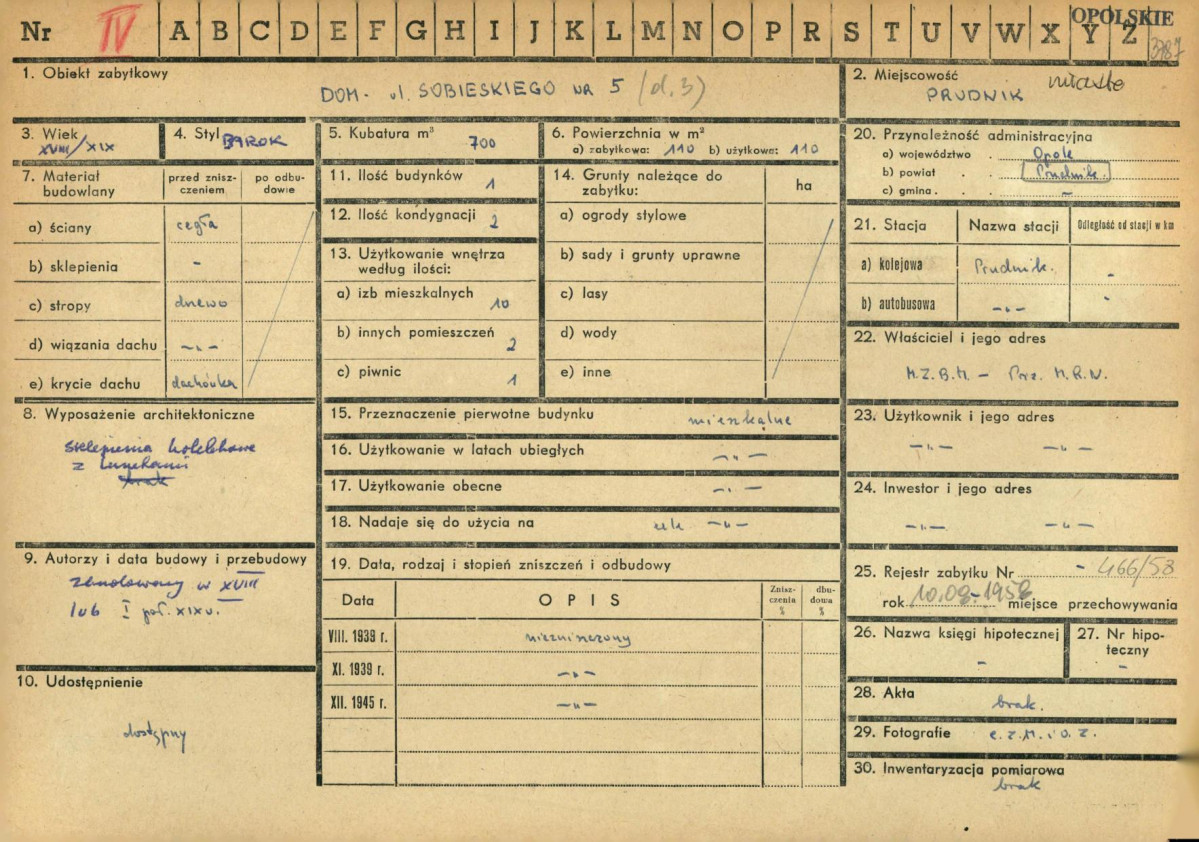 Nr IV A B C D E F G H I J K L M N O P R S T U V W X Y Z OPOLSKIE
3787
1. Obiekt zabytkowy
DOM - ul. SOBIESKIEGO NR 5 (d. 3)
2. Miejscowość
PRUDNIK miasto
3. Wiek
XVIII/XIX
4. Styl BAROK
5. Kubatura m³
700
6. Powierzchnia w m²
a) zabytkowa: 110 b) użytkowa: 110
7. Materiał budowlany
przed zniszczeniem
po odbudowie
a) ściany cegła
b) sklepienia -
c) stropy drewo
d) wiązania dachu -„-
e) krycie dachu dachówka
8. Wyposażenie architektoniczne
sklepienia kolebkowe
z lunetami
brak
9. Autorzy i data budowy i przebudowy
zbudowany w XVIII
lub I poł. XIX w.
10. Udostępnienie
dostępny
11. Ilość budynków 1
12. Ilość kondygnacji 2
13. Użytkowanie wnętrza
według ilości:
a) izb mieszkalnych 10
b) innych pomieszczeń 2
c) piwnic 1
14. Grunty należące do
zabytku:
ha
a) ogrody stylowe
b) sady i grunty uprawne
c) lasy
d) wody
e) inne
15. Przeznaczenie pierwotne budynku mieszkalne
16. Użytkowanie w latach ubiegłych -„-
17. Użytkowanie obecne -„-
18. Nadaje się do użycia na -„-
19. Data, rodzaj i stopień zniszczeń i odbudowy
Data
OPIS
Zniszczenia %
dbudowa %
VIII. 1939 r. niezniszczony
XI. 1939 r. -„-
XII. 1945 r. -„-
20. Przynależność administracyjna
a) województwo . Opole
b) powiat . . Prudnik
c) gmina . . -
21. Stacja
Nazwa stacji
Odległość od stacji w km
a) kolejowa Prudnik. -
b) autobusowa -„- -
22. Właściciel i jego adres
M.Z.B.M. - Prez. M.R.N.
23. Użytkownik i jego adres
-„- -„-
24. Inwestor i jego adres
-„- -„-
25. Rejestr zabytku Nr - 466/58
rok 10.08.1958 miejsce przechowywania
26. Nazwa księgi hipotecznej
-
27. Nr hipoteczny
-
28. Akta
brak.
29. Fotografie C.Z.M. i O.Z.
30. Inwentaryzacja pomiarowa
brak